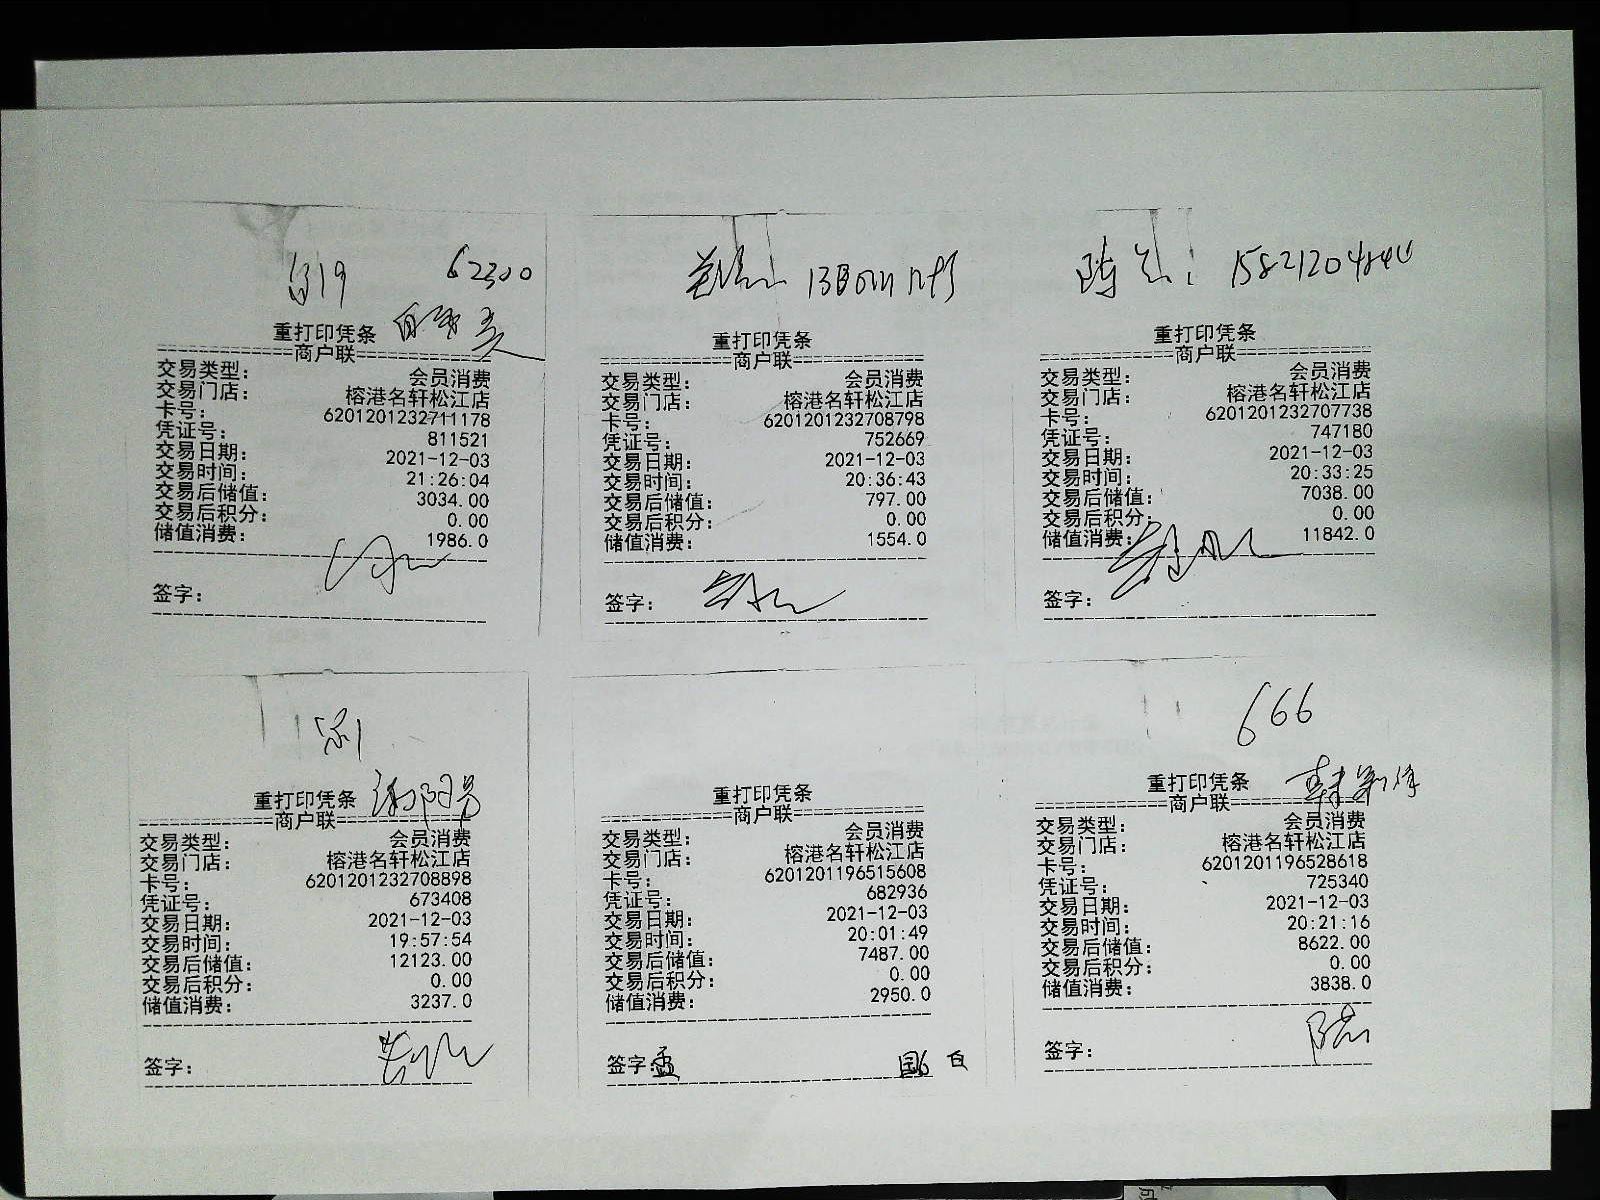 62300
重打印凭条
商户联
交易类型： 会员消费
交易门店： 榕港名轩松江店
卡号： 6201201232711178
凭证号： 811521
交易日期： 2021-12-03
交易时间： 21:26:04
交易后储值： 3034.00
交易后积分： 0.00
储值消费： 1986.0
签字：
重打印凭条
商户联
交易类型： 会员消费
交易门店： 榕港名轩松江店
卡号： 6201201232708798
凭证号： 752669
交易日期： 2021-12-03
交易时间： 20:36:43
交易后储值： 797.00
交易后积分： 0.00
储值消费： 1554.0
签字：
陈
重打印凭条
商户联
交易类型： 会员消费
交易门店： 榕港名轩松江店
卡号： 6201201232707738
凭证号： 747180
交易日期： 2021-12-03
交易时间： 20:33:25
交易后储值： 7038.00
交易后积分： 0.00
储值消费： 11842.0
签字：
重打印凭条
商户联
交易类型： 会员消费
交易门店： 榕港名轩松江店
卡号： 6201201232708898
凭证号： 673408
交易日期： 2021-12-03
交易时间： 19:57:54
交易后储值： 12123.00
交易后积分： 0.00
储值消费： 3237.0
签字：
重打印凭条
商户联
交易类型： 会员消费
交易门店： 榕港名轩松江店
卡号： 6201201196515608
凭证号： 682936
交易日期： 2021-12-03
交易时间： 20:01:49
交易后储值： 7487.00
交易后积分： 0.00
储值消费： 2950.0
签字：
666
重打印凭条
商户联
交易类型： 会员消费
交易门店： 榕港名轩松江店
卡号： 6201201196528618
凭证号： 725340
交易日期： 2021-12-03
交易时间： 20:21:16
交易后储值： 8622.00
交易后积分： 0.00
储值消费： 3838.0
签字：